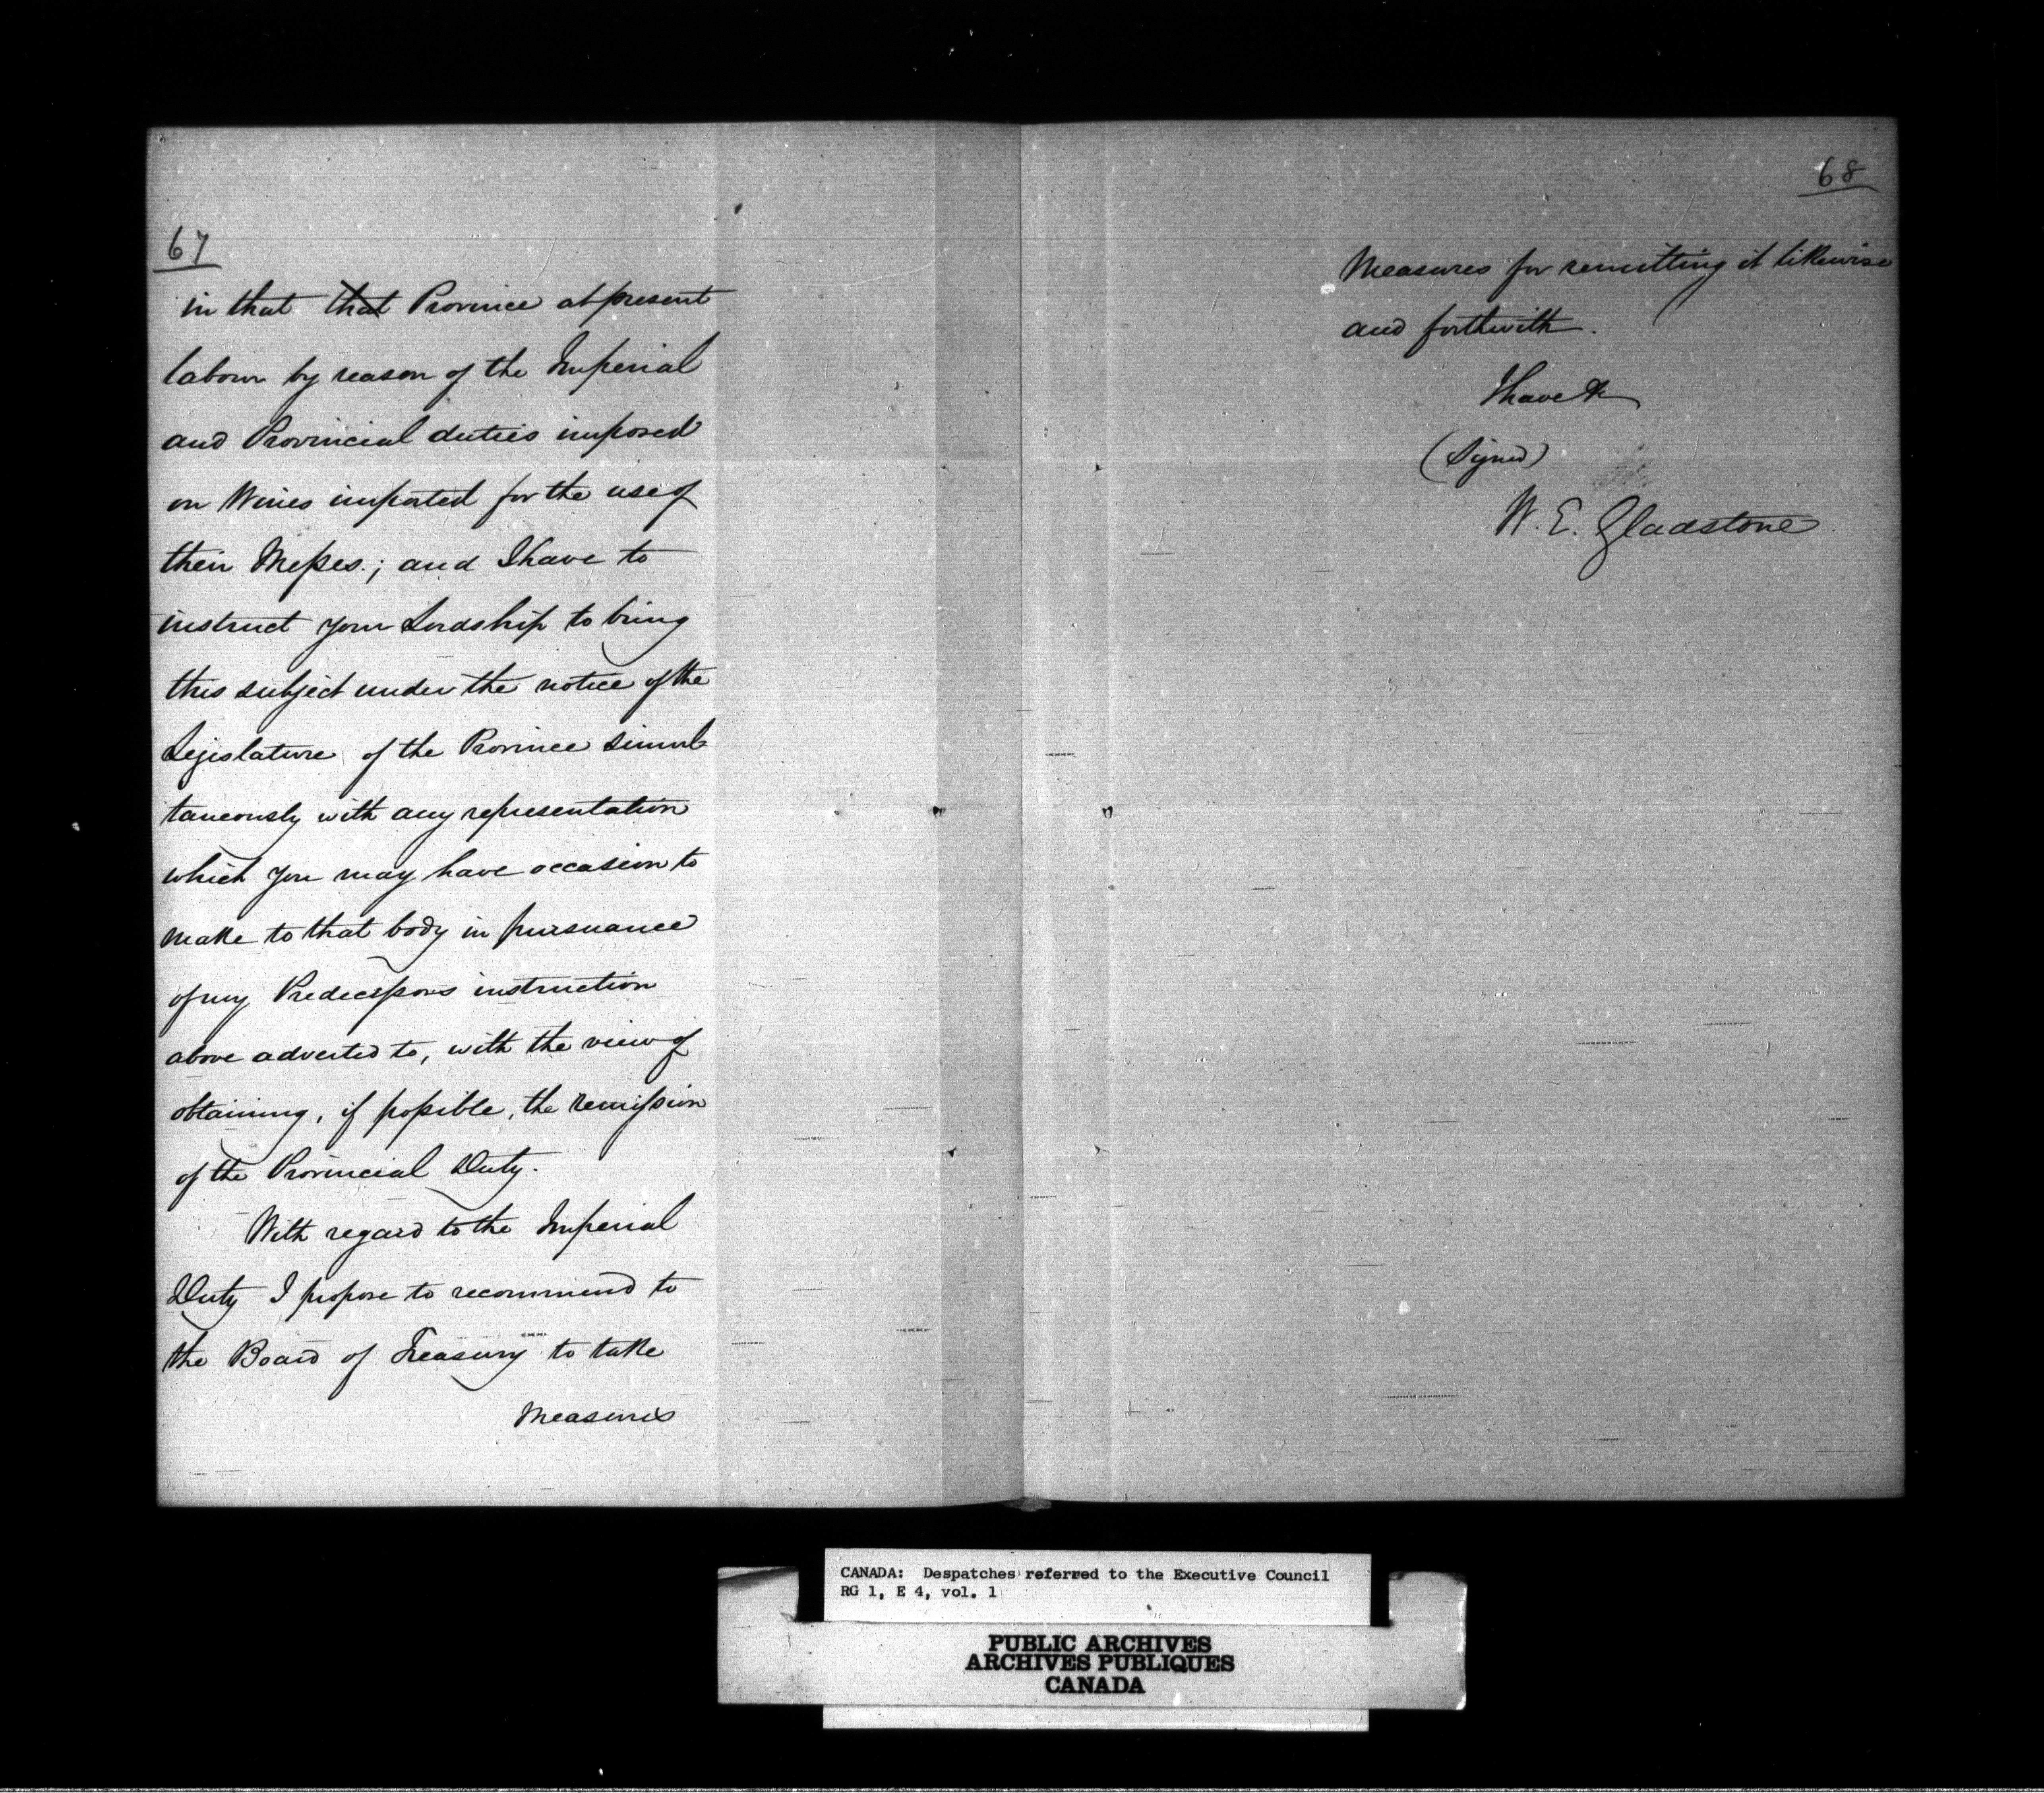 67
in that that Province at present
labour by reason of the Imperial
and Provincial duties imposed
on Wines imported for the use of
their Messes; and I have to
instruct your Lordship to bring
this subject under the notice of the
Legislature of the Province simul-
taneously with any representation
which you may have occasion to
make to that body in pursuance
of my Predecessors instruction
above adverted to, with the view of
obtaining, if possible, the remission
of the Provincial Duty.
With regard to the Imperial
Duty I propose to recommend to
the Board of Treasury to take
Measures
68
Measures for remitting it likewise
and forthwith.
I have &c
(Signed)
W. E. Gladstone
CANADA: Despatches referred to the Executive Council
RG 1, E 4, vol. 1
PUBLIC ARCHIVES
ARCHIVES PUBLIQUES
CANADA